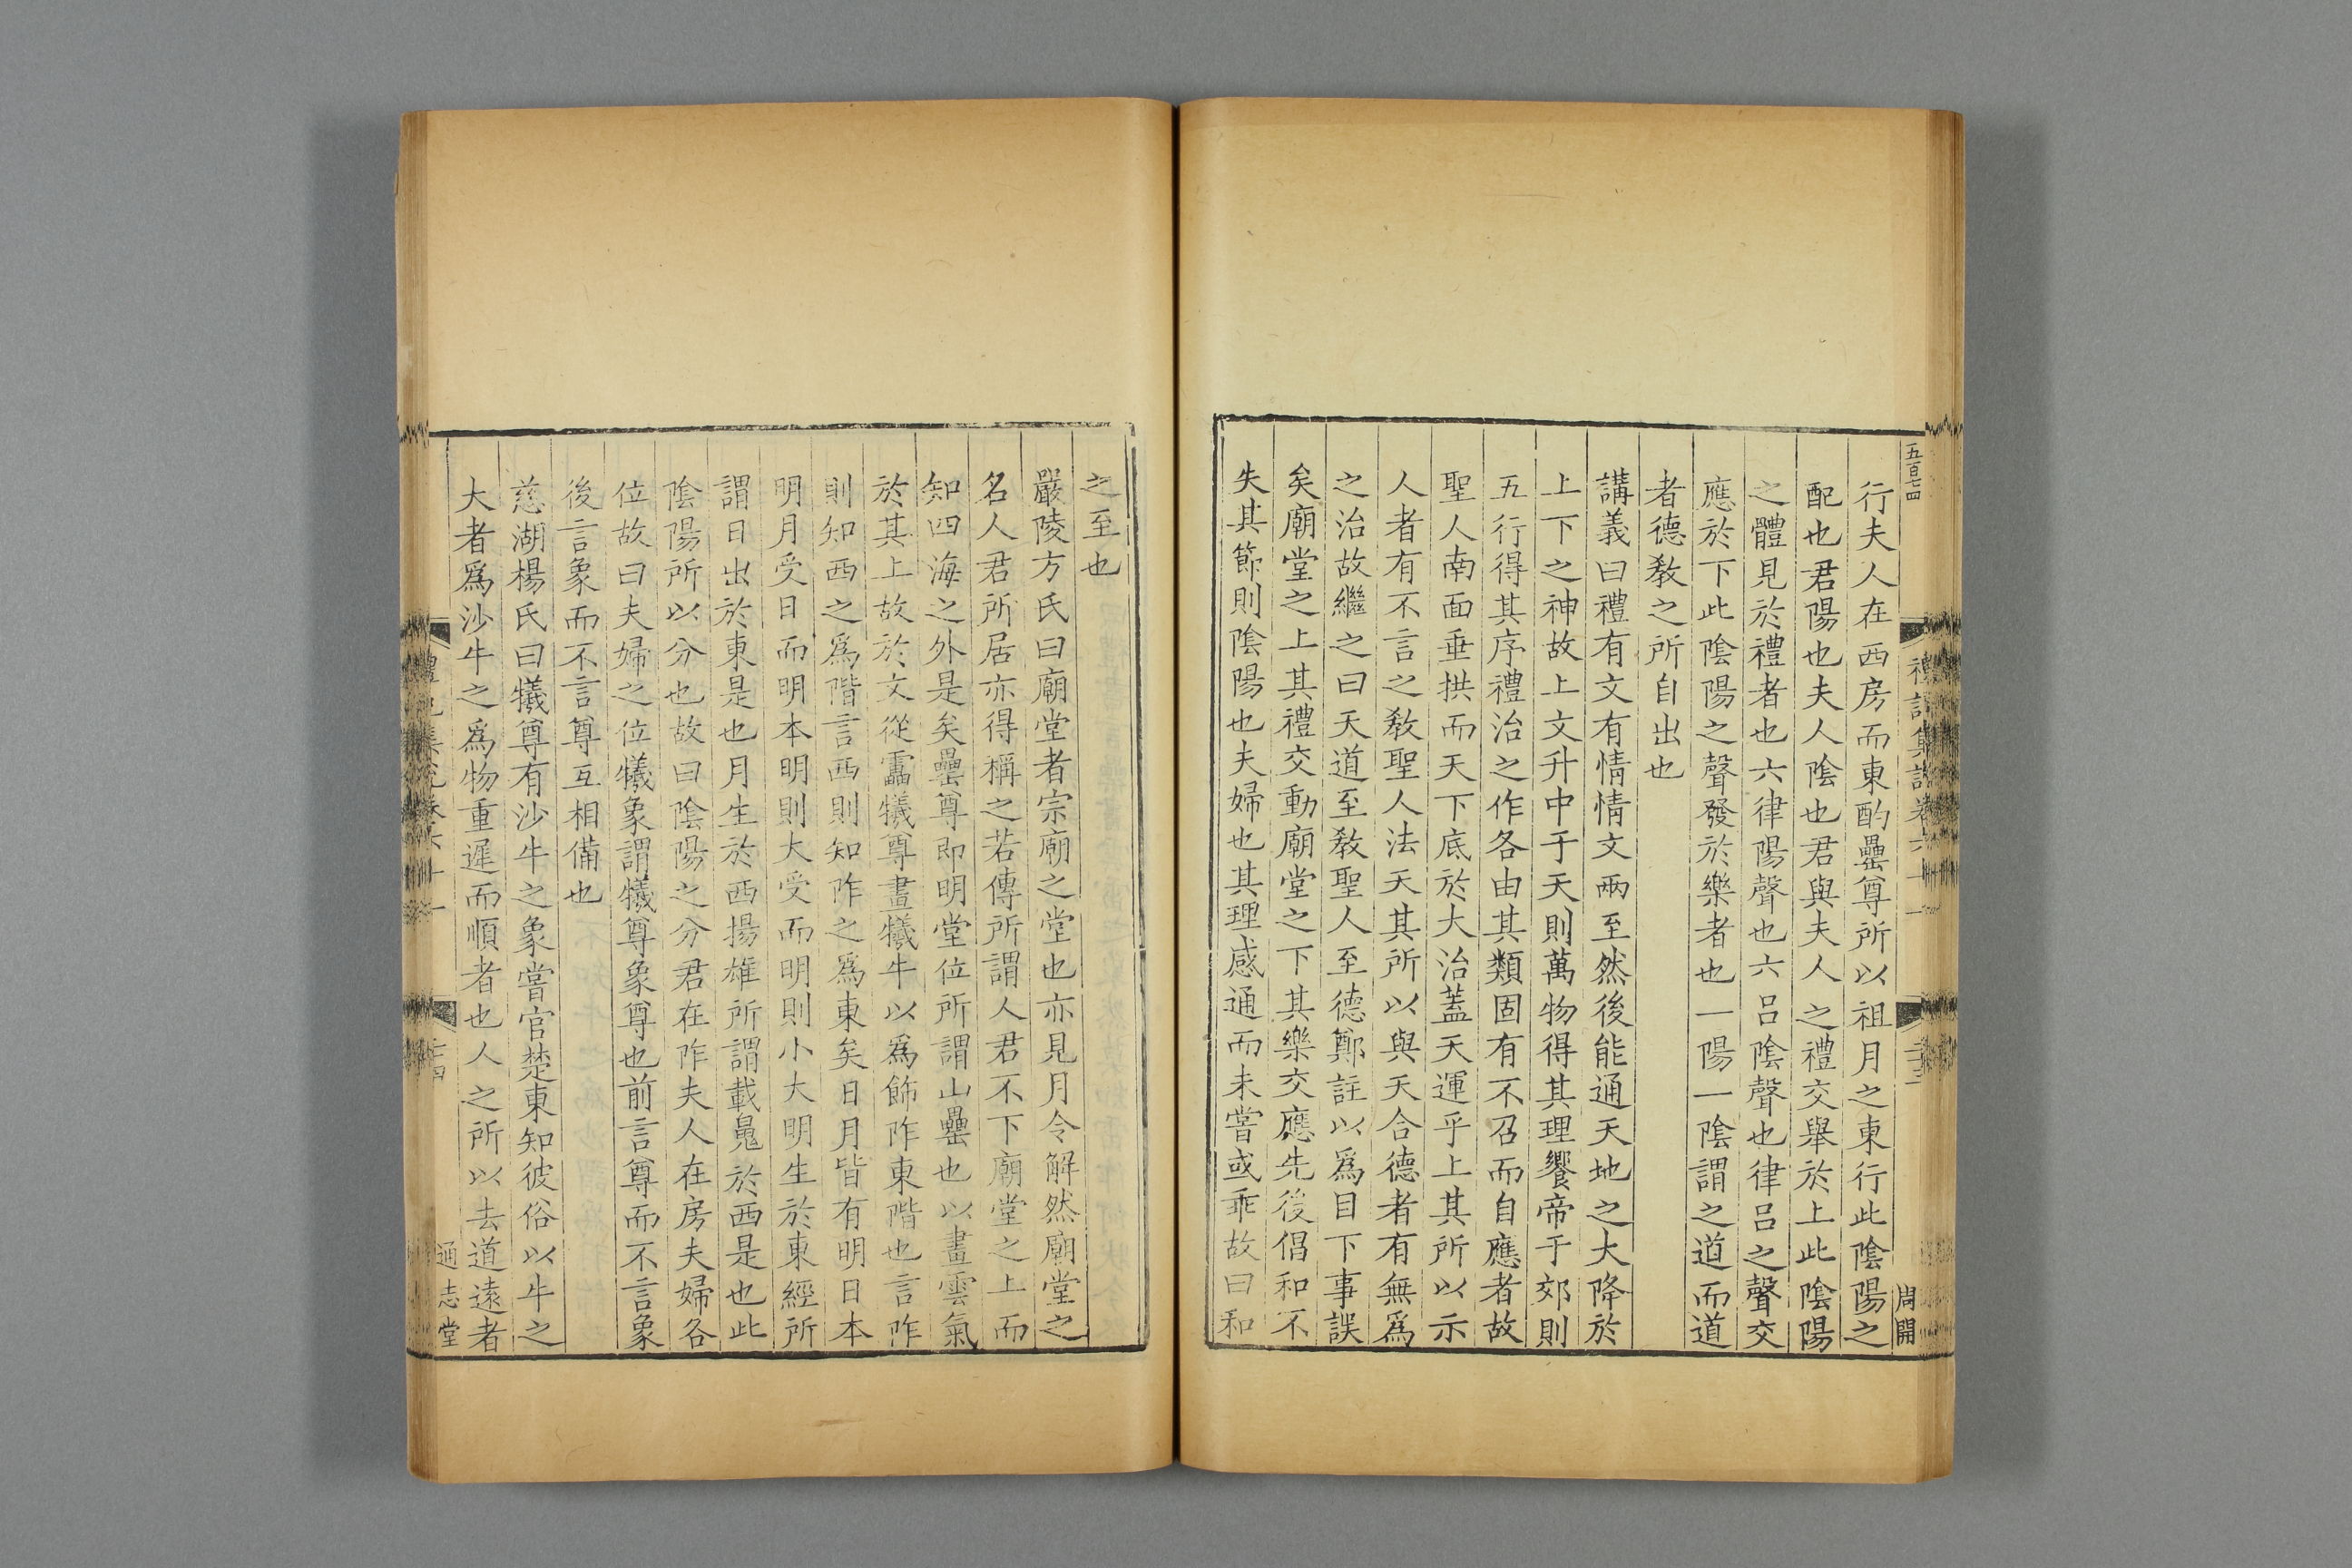 五百七四
行夫人在西房而東酌罍尊所以祖月之東行此陰陽之
配也君陽也夫人陰也君與夫人之禮交舉於上此陰陽
之體見於禮者也六律陽聲也六呂陰聲也律呂之聲交
應於下此陰陽之聲發於樂者也一陽一陰謂之道而道
者德教之所自出也
講義曰禮有文有情情文兩至然後能通天地之大降於
上下之神故上文升中于天則萬物得其理饗帝于郊則
五行得其序禮治之作各由其類固有不召而自應者故
聖人南面垂拱而天下底於大治蓋天運乎上其所以示
人者有不言之教聖人法天其所以與天合德者有無爲
之治故繼之曰天道至教聖人至德鄭註以爲目下事誤
矣廟堂之上其禮交動廟堂之下其樂交應先後倡和不
失其節則陰陽也夫婦也其理感通而未嘗或乖故曰和
周開
之至也
嚴陵方氏曰廟堂者宗廟之堂也亦見月令解然廟堂之
名人君所居亦得稱之若傳所謂人君不下廟堂之上而
知四海之外是矣罍尊即明堂位所謂山罍也以畫雲氣
於其上故於文從靁犧尊畫犧牛以爲飾阼東階也言阼
則知西之爲階言西則知阼之爲東矣日月皆有明日本
明月受日而明本明則大受而明則小大明生於東經所
謂日出於東是也月生於西揚雄所謂載魄於西是也此
陰陽所以分也故曰陰陽之分君在阼夫人在房夫婦各
位故曰夫婦之位犧象謂犧尊象尊也前言尊而不言象
後言象而不言尊互相備也
慈湖楊氏曰犧尊有沙牛之象嘗官楚東知彼俗以牛之
大者爲沙牛之爲物重遲而順者也人之所以去道遠者
通志堂